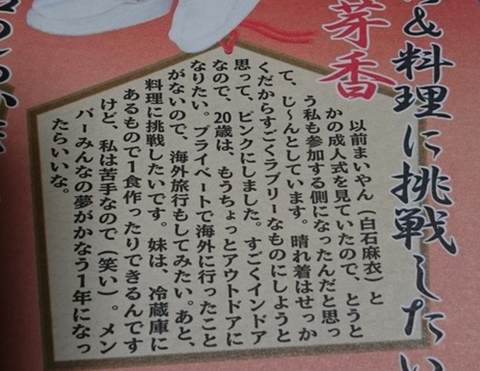 &料理に挑戦したい
芽香
以前まいやん(白石麻衣)と
かの成人式を見ていたので、とうと
う私も参加する側になったんだと思っ
て、じ〜んとしています。晴れ着はせっか
くだからすごくラブリーなものにしようと
思って、ピンクにしました。すごくインドア
なので、20歳は、もうちょっとアウトドアに
なりたい。プライベートで海外に行ったこと
がないので、海外旅行もしてみたい。あと、
料理に挑戦したいです。妹は、冷蔵庫に
あるもので1食作ったりできるんです
けど、私は苦手なので(笑い)。メン
バーみんなの夢がかなう1年になっ
たらいいな。